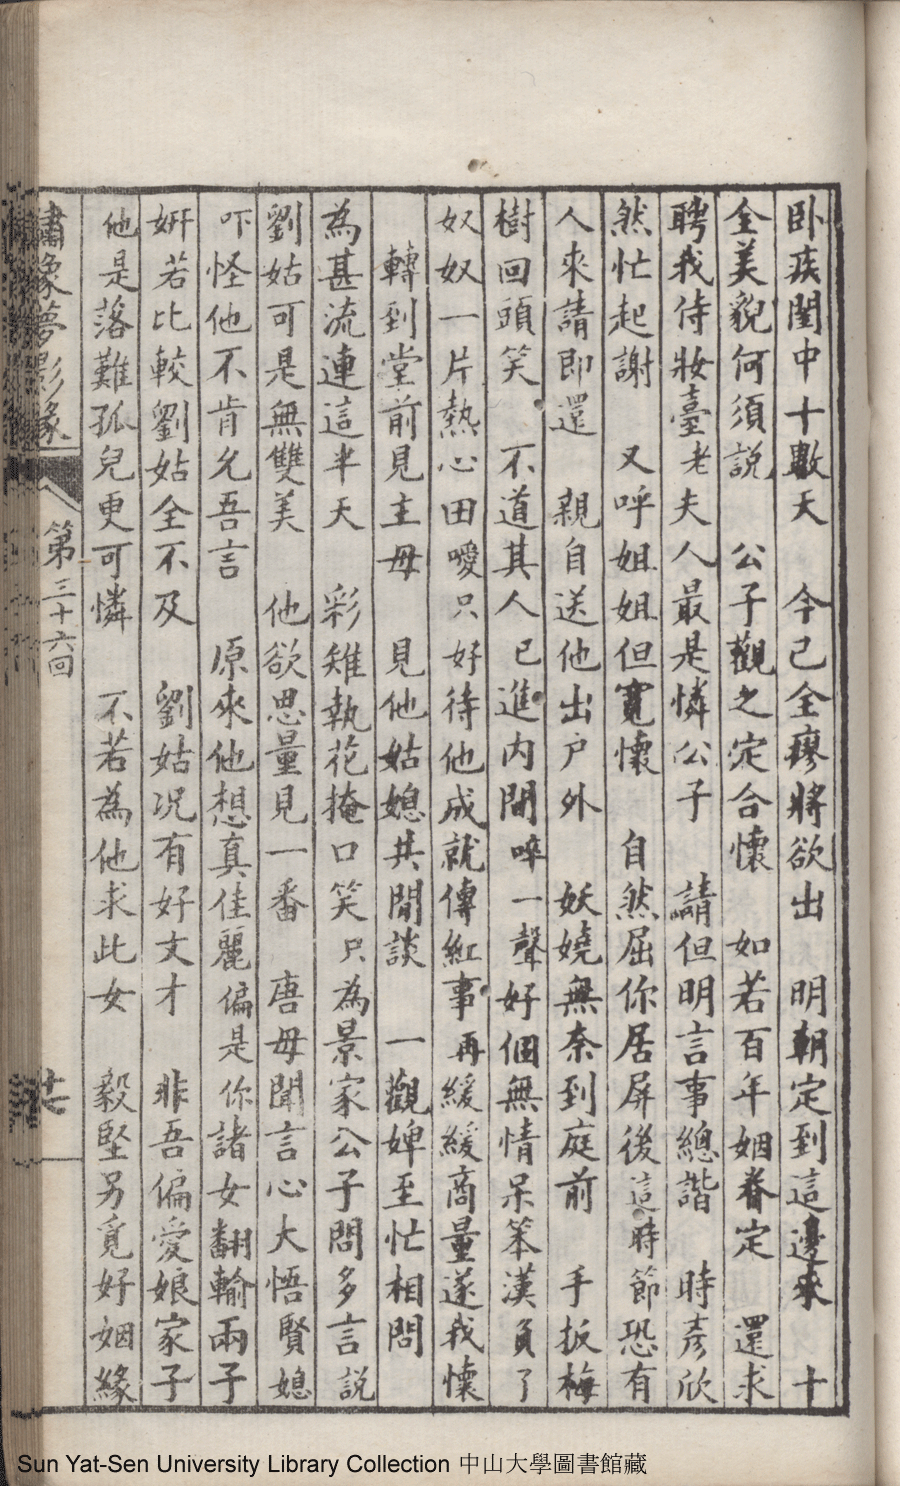 卧疾閨中十數天　今已全瘳將欲出　明朝定到這邊來　十
全美貌何須說　公子觀之定合懷　如若百年姻眷定　還求
聘我侍妝臺老夫人最是憐公子　請但明言事總諧　時彥欣
然忙起謝　又呼姐姐但寬懷　自然屈你居屏後這時節恐有
人來請即還　親自送他出戶外　妖嬈無奈到庭前　手扳梅
樹回頭笑　不道其人已進內間啐一聲好個無情呆笨漢負了
奴奴一片熱心田噯只好待他成就傳紅事再緩緩商量遂我懷
轉到堂前見主母　見他姑媳共閒談　一觀婢至忙相問
為甚流連這半天　彩雉執花掩口笑只為景家公子問多言說
劉姑可是無雙美　他欲思量見一番　唐母聞言心大悟賢媳
吓怪他不肯允吾言　原來他想真佳麗偏是你諸女翻輸兩子
妍若比較劉姑全不及　劉姑况有好文才　非吾偏愛娘家子
他是落難孤兒更可憐　不若為他求此女　毅堅另覓好姻緣
繡像夢影緣　第三十六回　廿七
Sun Yat-Sen University Library Collection 中山大學圖書館藏